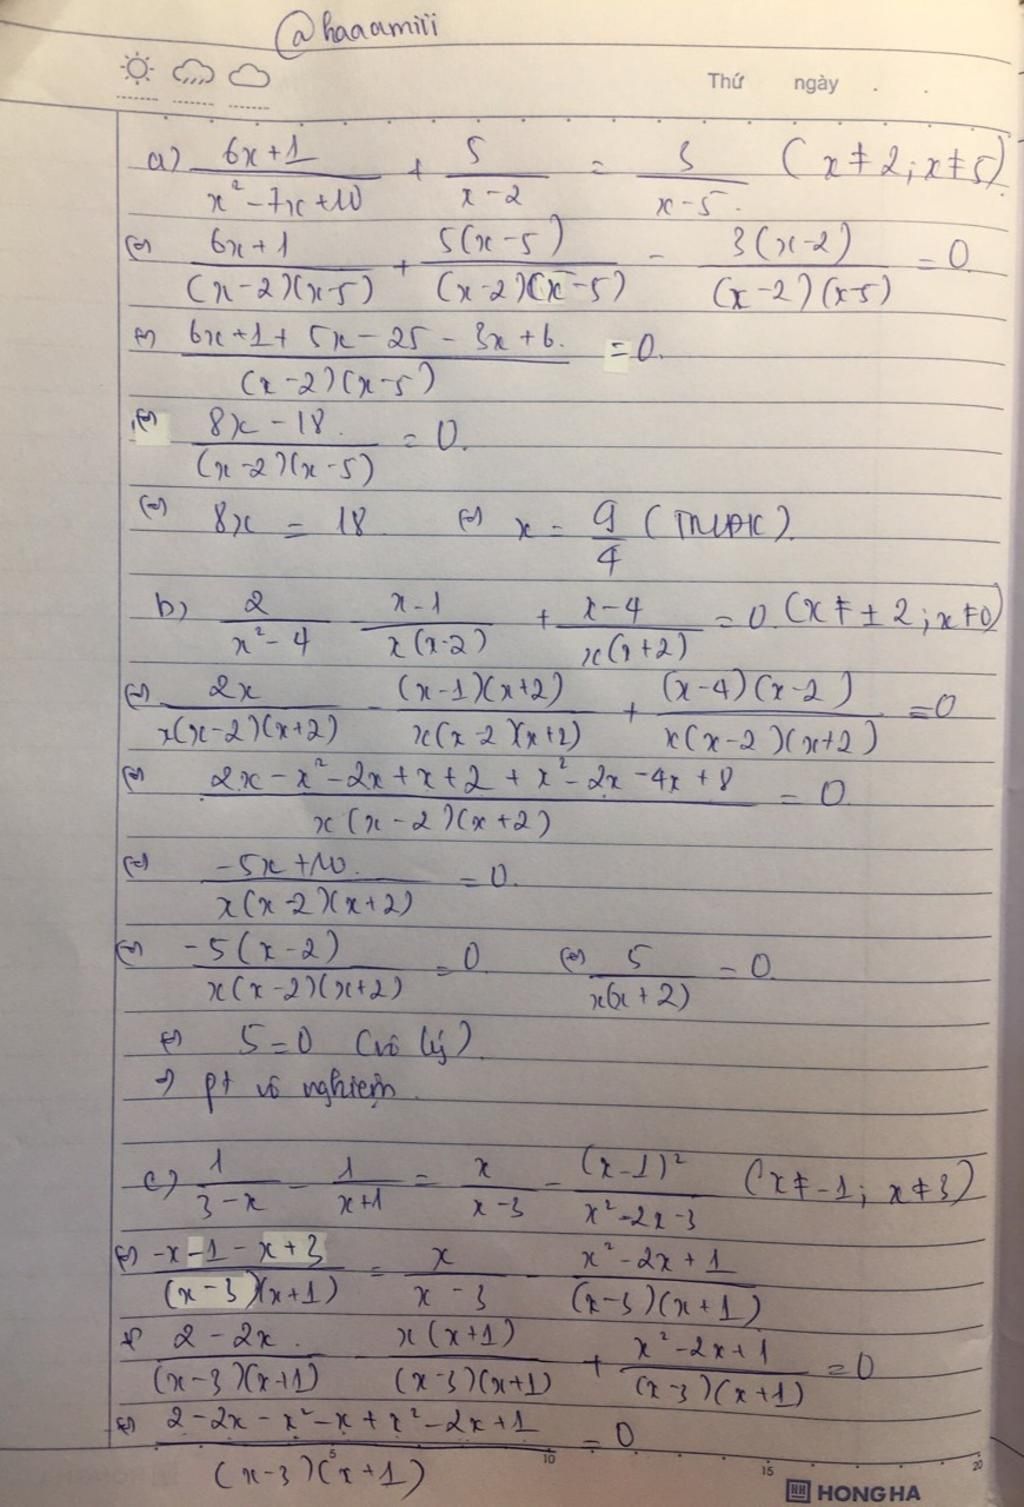 @haaamiii
Thứ ngày
a) (6x+1)/(x²-7x+10) + 5/(x-2) = 3/(x-5) (x≠2; x≠5)
(=) (6x+1)/((x-2)(x-5)) + 5(x-5)/((x-2)(x-5)) - 3(x-2)/((x-2)(x-5)) = 0
(=) (6x+1+5x-25-3x+6)/((x-2)(x-5)) = 0.
(=) (8x-18)/((x-2)(x-5)) = 0.
(=) 8x = 18 (=) x = 9/4 (TMĐK).
b) 2/(x²-4) - (x-1)/(x(x-2)) + (x-4)/(x(x+2)) = 0 (x≠±2; x≠0)
(=) 2x/(x(x-2)(x+2)) - (x-1)(x+2)/(x(x-2)(x+2)) + (x-4)(x-2)/(x(x-2)(x+2)) = 0
(=) (2x-x²-2x+x+2+x²-2x-4x+8)/(x(x-2)(x+2)) = 0
(=) (-5x+10)/(x(x-2)(x+2)) = 0.
(=) -5(x-2)/(x(x-2)(x+2)) = 0 (=) 5/(x(x+2)) = 0
(=) 5=0 (vô lý)
=) pt vô nghiệm.
c) 1/(3-x) - 1/(x+1) = x/(x-3) - (x-1)²/(x²-2x-3) (x≠-1; x≠3)
(=) (-x-1-x+3)/((x-3)(x+1)) = x/(x-3) - (x²-2x+1)/((x-3)(x+1))
(=) (2-2x)/((x-3)(x+1)) - x(x+1)/((x-3)(x+1)) + (x²-2x+1)/((x-3)(x+1)) = 0
(=) (2-2x-x²-x+x²-2x+1)/((x-3)(x+1)) = 0
5 10 15 20
HONG HA